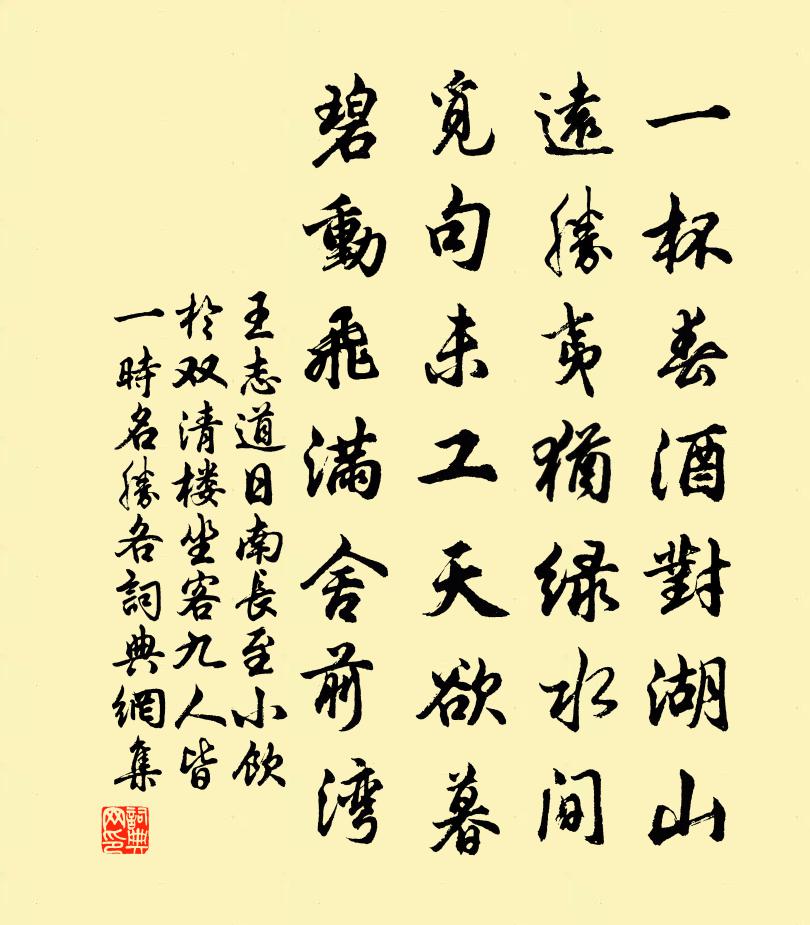 一杯春酒對湖山
遠勝夷猶緑水間
覓句未工天欲暮
碧動飛滿舍前湾
王志道日南長至小飲
於双清楼坐客九人皆
一時名勝各詞典網集
詞典网印